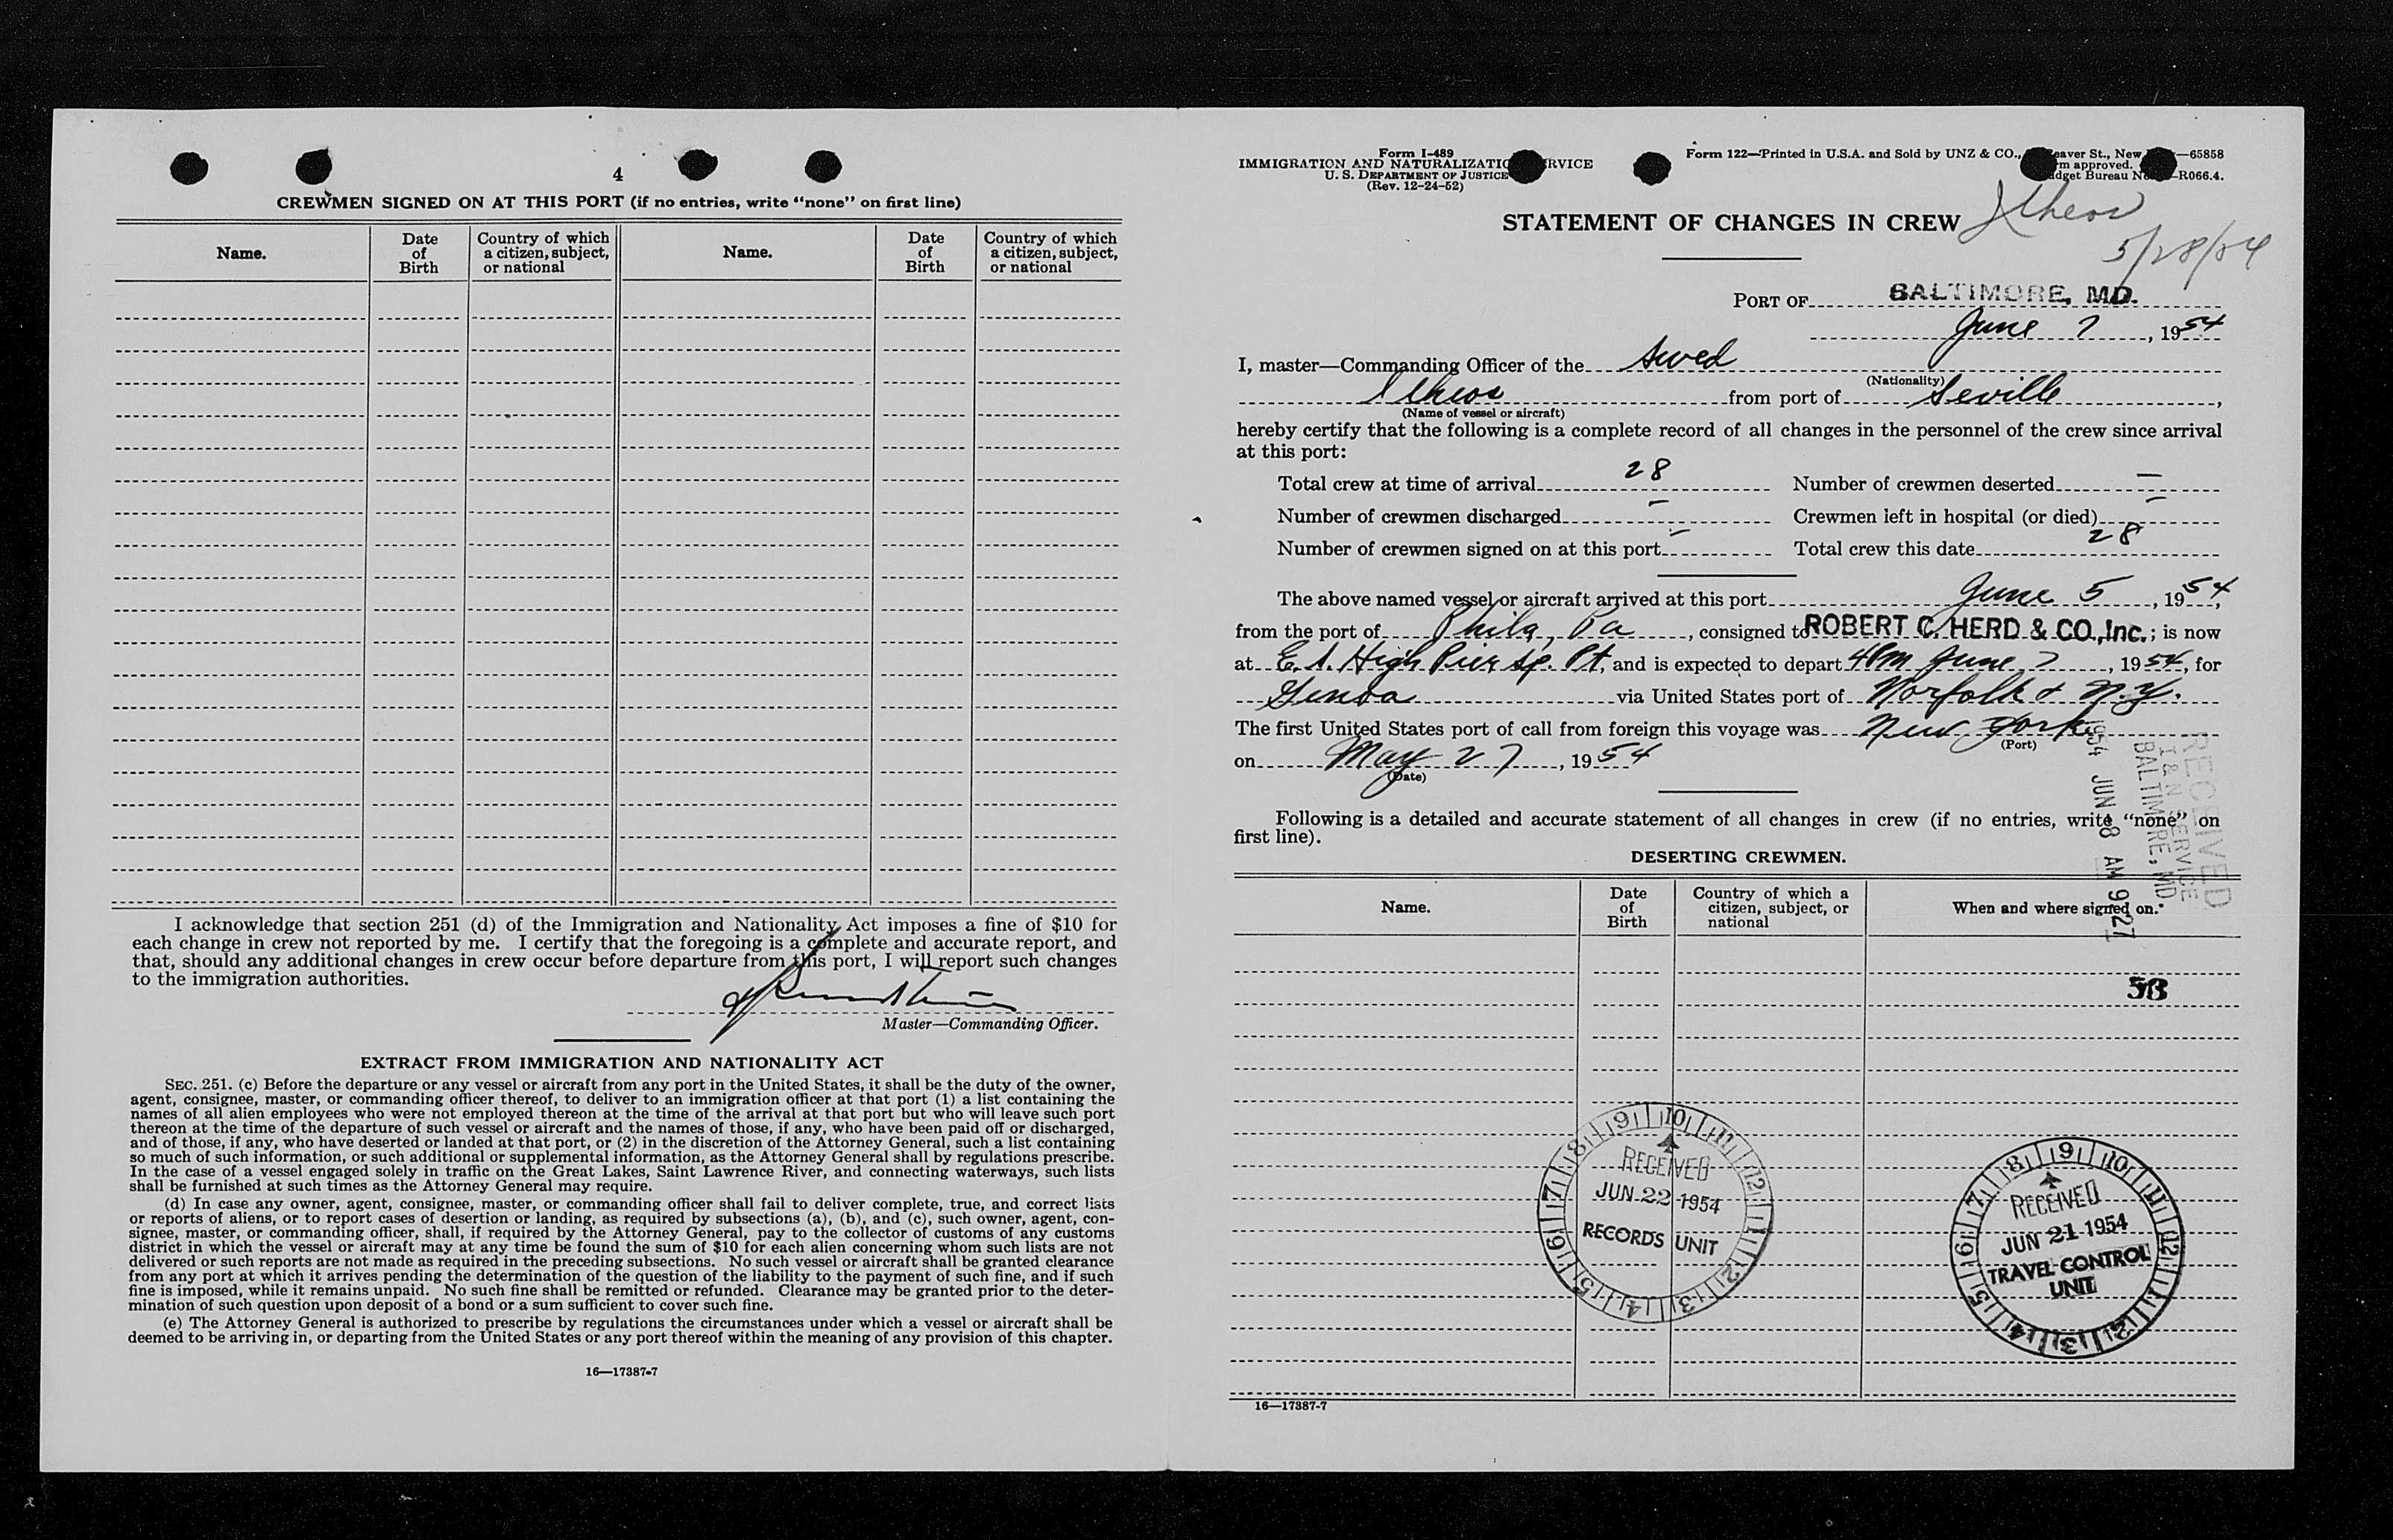 4
CREWMEN SIGNED ON AT THIS PORT (if no entries, write “none” on first line)
Name.
Date of Birth
Country of which a citizen, subject, or national
Name.
Date of Birth
Country of which a citizen, subject, or national
I acknowledge that section 251 (d) of the Immigration and Nationality Act imposes a fine of $10 for
each change in crew not reported by me. I certify that the foregoing is a complete and accurate report, and
that, should any additional changes in crew occur before departure from this port, I will report such changes
to the immigration authorities.
Master—Commanding Officer.
EXTRACT FROM IMMIGRATION AND NATIONALITY ACT
SEC. 251. (c) Before the departure or any vessel or aircraft from any port in the United States, it shall be the duty of the owner,
agent, consignee, master, or commanding officer thereof, to deliver to an immigration officer at that port (1) a list containing the
names of all alien employees who were not employed thereon at the time of the arrival at that port but who will leave such port
thereon at the time of the departure of such vessel or aircraft and the names of those, if any, who have been paid off or discharged,
and of those, if any, who have deserted or landed at that port, or (2) in the discretion of the Attorney General, such a list containing
so much of such information, or such additional or supplemental information, as the Attorney General shall by regulations prescribe.
In the case of a vessel engaged solely in traffic on the Great Lakes, Saint Lawrence River, and connecting waterways, such lists
shall be furnished at such times as the Attorney General may require.
(d) In case any owner, agent, consignee, master, or commanding officer shall fail to deliver complete, true, and correct lists
or reports of aliens, or to report cases of desertion or landing, as required by subsections (a), (b), and (c), such owner, agent, con-
signee, master, or commanding officer, shall, if required by the Attorney General, pay to the collector of customs of any customs
district in which the vessel or aircraft may at any time be found the sum of $10 for each alien concerning whom such lists are not
delivered or such reports are not made as required in the preceding subsections. No such vessel or aircraft shall be granted clearance
from any port at which it arrives pending the determination of the question of the liability to the payment of such fine, and if such
fine is imposed, while it remains unpaid. No such fine shall be remitted or refunded. Clearance may be granted prior to the deter-
mination of such question upon deposit of a bond or a sum sufficient to cover such fine.
(e) The Attorney General is authorized to prescribe by regulations the circumstances under which a vessel or aircraft shall be
deemed to be arriving in, or departing from the United States or any port thereof within the meaning of any provision of this chapter.
16—17387-7
Form I-489
IMMIGRATION AND NATURALIZATIO RVICE
U. S. DEPARTMENT OF JUSTICE
(Rev. 12-24-52)
Form 122—Printed in U.S.A. and Sold by UNZ & CO., eaver St., New —65858
m approved.
dget Bureau N —R066.4.
STATEMENT OF CHANGES IN CREW
Ilheos
5/28/54
PORT OF BALTIMORE, MD.
June 7, 1954
I, master—Commanding Officer of the Swed
(Nationality)
Ilheos from port of Seville,
(Name of vessel or aircraft)
hereby certify that the following is a complete record of all changes in the personnel of the crew since arrival
at this port:
Total crew at time of arrival 28 Number of crewmen deserted —
Number of crewmen discharged — Crewmen left in hospital (or died) —
Number of crewmen signed on at this port — Total crew this date 28
The above named vessel or aircraft arrived at this port June 5, 1954,
from the port of Phila, Pa, consigned to ROBERT C. HERD & CO., Inc.; is now
at E. S. High Pier Sp. Pt, and is expected to depart 4PM June 7, 1954, for
Genoa via United States port of Norfolk & N.Y.
The first United States port of call from foreign this voyage was New York
(Port)
on May 27, 1954
(Date)
RECEIVED
I & N SERVICE
BALTIMORE, MD
1954 JUN 8 AM 9 27
Following is a detailed and accurate statement of all changes in crew (if no entries, write “none” on
first line).
DESERTING CREWMEN.
Name.
Date of Birth
Country of which a citizen, subject, or national
When and where signed on.
RECEIVED
JUN 22 1954
RECORDS UNIT
RECEIVED
JUN 21 1954
TRAVEL CONTROL
UNIT
16—17387-7